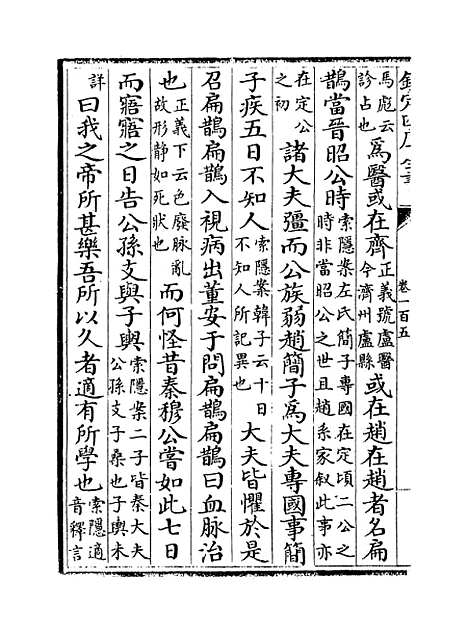 欽定四庫全書
卷一百五
馬彪云
診占也
為醫或在齊
正義號盧醫
今濟州盧縣
或在趙在趙者名扁
鵲當晉昭公時
索隱案左氏簡子專國在定頃二公之
時非當昭公之世且趙系家叙此事亦
在定公
之初
諸大夫彊而公族弱趙簡子為大夫專國事簡
子疾五日不知人
索隱案韓子云十日
不知人所記異也
大夫皆懼於是
召扁鵲扁鵲入視病出董安于問扁鵲扁鵲曰血脉治
也
正義下云色廢脉亂
故形静如死狀也
而何怪昔秦穆公嘗如此七日
而寤寤之日告公孫支與子輿
索隱案二子皆秦大夫
公孫支子桑也子輿未
詳
曰我之帝所甚樂吾所以久者適有所學也
索隱適
音釋言